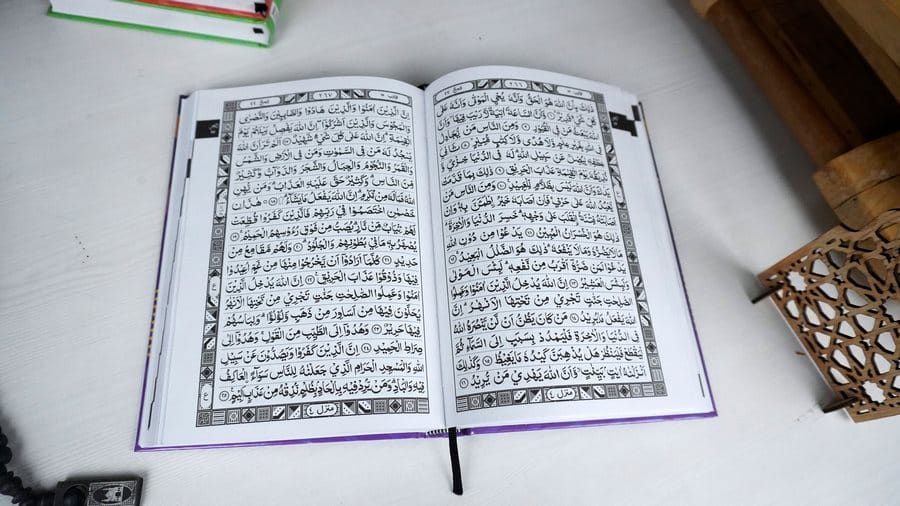 اقترب ١٧
٢٦٦
الحج ٢٢
ذٰلِكَ بِاَنَّ اللّٰهَ هُوَ الْحَقُّ وَاَنَّهٗ يُحْيِ الْمَوْتٰى وَاَنَّهٗ عَلٰى كُلِّ
شَيْءٍ قَدِيْرٌ ۙ﴿٦﴾ وَّاَنَّ السَّاعَةَ اٰتِيَةٌ لَّا رَيْبَ فِيْهَا ۙ وَاَنَّ
اللّٰهَ يَبْعَثُ مَنْ فِي الْقُبُوْرِ ﴿٧﴾ وَمِنَ النَّاسِ مَنْ يُّجَادِلُ
فِي اللّٰهِ بِغَيْرِ عِلْمٍ وَّلَا هُدًى وَّلَا كِتٰبٍ مُّنِيْرٍ ۙ﴿٨﴾ ثَانِيَ
عِطْفِهٖ لِيُضِلَّ عَنْ سَبِيْلِ اللّٰهِ ؕ لَهٗ فِي الدُّنْيَا خِزْيٌ وَّ
نُذِيْقُهٗ يَوْمَ الْقِيٰمَةِ عَذَابَ الْحَرِيْقِ ﴿٩﴾ ذٰلِكَ بِمَا قَدَّمَتْ
يَدٰكَ وَاَنَّ اللّٰهَ لَيْسَ بِظَلَّامٍ لِّلْعَبِيْدِ ﴿١٠﴾ وَمِنَ النَّاسِ مَنْ
يَّعْبُدُ اللّٰهَ عَلٰى حَرْفٍ ۚ فَاِنْ اَصَابَهٗ خَيْرُ ِۨاطْمَاَنَّ بِهٖ ۚ وَاِنْ
اَصَابَتْهُ فِتْنَةُ ِۨانْقَلَبَ عَلٰى وَجْهِهٖ ۚ خَسِرَ الدُّنْيَا وَالْاٰخِرَةَ ؕ
ذٰلِكَ هُوَ الْخُسْرَانُ الْمُبِيْنُ ﴿١١﴾ يَدْعُوْا مِنْ دُوْنِ اللّٰهِ
مَا لَا يَضُرُّهٗ وَمَا لَا يَنْفَعُهٗ ؕ ذٰلِكَ هُوَ الضَّلٰلُ الْبَعِيْدُ ﴿١٢﴾
يَدْعُوْا لَمَنْ ضَرُّهٗۤ اَقْرَبُ مِنْ نَّفْعِهٖ ؕ لَبِئْسَ الْمَوْلٰى
وَلَبِئْسَ الْعَشِيْرُ ﴿١٣﴾ اِنَّ اللّٰهَ يُدْخِلُ الَّذِيْنَ اٰمَنُوْا وَعَمِلُوا
الصّٰلِحٰتِ جَنّٰتٍ تَجْرِيْ مِنْ تَحْتِهَا الْاَنْهٰرُ ؕ اِنَّ
اللّٰهَ يَفْعَلُ مَا يُرِيْدُ ﴿١٤﴾ مَنْ كَانَ يَظُنُّ اَنْ لَّنْ يَّنْصُرَهُ اللّٰهُ
فِي الدُّنْيَا وَالْاٰخِرَةِ فَلْيَمْدُدْ بِسَبَبٍ اِلَى السَّمَآءِ ثُمَّ
لْيَقْطَعْ فَلْيَنْظُرْ هَلْ يُذْهِبَنَّ كَيْدُهٗ مَا يَغِيْظُ ﴿١٥﴾ وَكَذٰلِكَ
اَنْزَلْنٰهُ اٰيٰتٍۭ بَيِّنٰتٍ ۙ وَّاَنَّ اللّٰهَ يَهْدِيْ مَنْ يُّرِيْدُ ﴿١٦﴾
منزل ٤
اقترب ١٧
٢٦٧
الحج ٢٢
اِنَّ الَّذِيْنَ اٰمَنُوْا وَالَّذِيْنَ هَادُوْا وَالصّٰبِـِٕيْنَ وَالنَّصٰرٰى
وَالْمَجُوْسَ وَالَّذِيْنَ اَشْرَكُوْۤا ۖ اِنَّ اللّٰهَ يَفْصِلُ بَيْنَهُمْ يَوْمَ
الْقِيٰمَةِ ؕ اِنَّ اللّٰهَ عَلٰى كُلِّ شَيْءٍ شَهِيْدٌ ﴿١٧﴾ اَلَمْ تَرَ اَنَّ اللّٰهَ
يَسْجُدُ لَهٗ مَنْ فِي السَّمٰوٰتِ وَمَنْ فِي الْاَرْضِ وَالشَّمْسُ
وَالْقَمَرُ وَالنُّجُوْمُ وَالْجِبَالُ وَالشَّجَرُ وَالدَّوَآبُّ وَكَثِيْرٌ
مِّنَ النَّاسِ ؕ وَكَثِيْرٌ حَقَّ عَلَيْهِ الْعَذَابُ ؕ وَمَنْ يُّهِنِ
اللّٰهُ فَمَا لَهٗ مِنْ مُّكْرِمٍ ؕ اِنَّ اللّٰهَ يَفْعَلُ مَا يَشَآءُ ﴿١٨﴾ هٰذٰنِ
خَصْمٰنِ اخْتَصَمُوْا فِيْ رَبِّهِمْ ۫ فَالَّذِيْنَ كَفَرُوْا قُطِّعَتْ
لَهُمْ ثِيَابٌ مِّنْ نَّارٍ ؕ يُصَبُّ مِنْ فَوْقِ رُءُوْسِهِمُ الْحَمِيْمُ ﴿١٩﴾
يُصْهَرُ بِهٖ مَا فِيْ بُطُوْنِهِمْ وَالْجُلُوْدُ ﴿٢٠﴾ وَلَهُمْ مَّقَامِعُ مِنْ
حَدِيْدٍ ﴿٢١﴾ كُلَّمَاۤ اَرَادُوْۤا اَنْ يَّخْرُجُوْا مِنْهَا مِنْ غَمٍّ اُعِيْدُوْا
فِيْهَا ۗ وَذُوْقُوْا عَذَابَ الْحَرِيْقِ ﴿٢٢﴾ اِنَّ اللّٰهَ يُدْخِلُ الَّذِيْنَ
اٰمَنُوْا وَعَمِلُوا الصّٰلِحٰتِ جَنّٰتٍ تَجْرِيْ مِنْ تَحْتِهَا الْاَنْهٰرُ
يُحَلَّوْنَ فِيْهَا مِنْ اَسَاوِرَ مِنْ ذَهَبٍ وَّلُؤْلُؤًا ؕ وَلِبَاسُهُمْ
فِيْهَا حَرِيْرٌ ﴿٢٣﴾ وَهُدُوْۤا اِلَى الطَّيِّبِ مِنَ الْقَوْلِ ۚ وَهُدُوْۤا اِلٰى
صِرَاطِ الْحَمِيْدِ ﴿٢٤﴾ اِنَّ الَّذِيْنَ كَفَرُوْا وَيَصُدُّوْنَ عَنْ سَبِيْلِ
اللّٰهِ وَالْمَسْجِدِ الْحَرَامِ الَّذِيْ جَعَلْنٰهُ لِلنَّاسِ سَوَآءَ ِۨالْعَاكِفُ
فِيْهِ وَالْبَادِ ؕ وَمَنْ يُّرِدْ فِيْهِ بِاِلْحَادٍۭ بِظُلْمٍ نُّذِقْهُ مِنْ عَذَابٍ اَلِيْمٍ ﴿٢٥﴾
منزل ٤
ع
ع